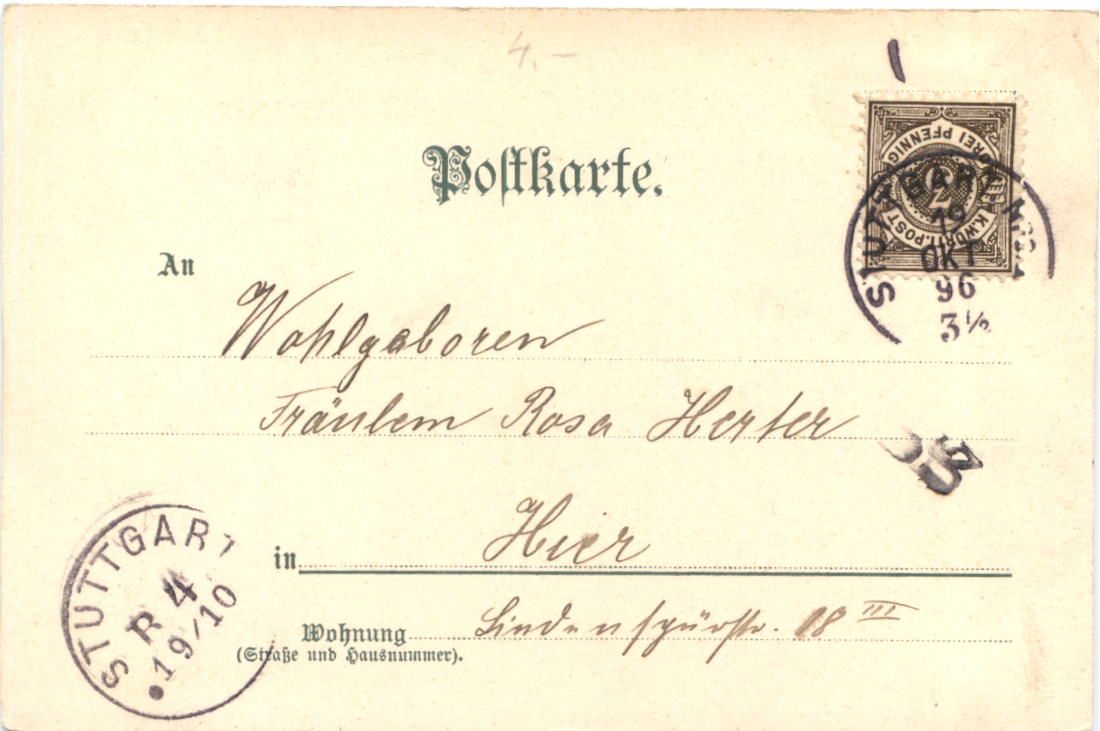 4.-
Postkarte.
DREI PFENNIG
K.WÜRT.POST
STUTTGART
19
OKT
96
3½
An
Wohlgeboren
Fräulein Rosa Herter
in Hier
Wohnung Lindenspürstr. 18 III
(Straße und Hausnummer).
STUTTGART
R 4
19/10